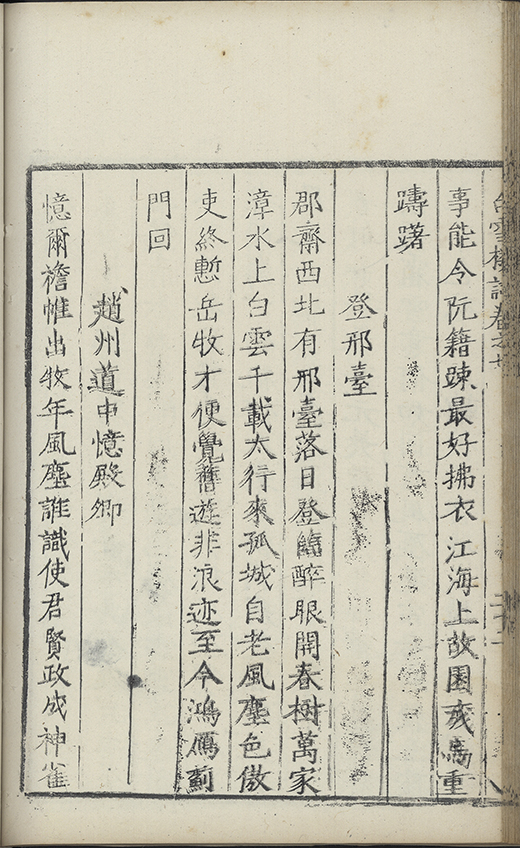 白雪樓詩卷之七
事能令阮籍踈最好拂衣江海上故園戎馬重
躊躇
登邢臺
郡齋西北有邢臺落日登臨醉眼開春樹萬家
漳水上白雲千載太行來孤城自老風塵色傲
吏終慙岳牧才便覺舊遊非浪迹至今鴻鴈薊
門回
趙州道中憶殿卿
憶爾襜帷出牧年風塵誰識使君賢政成神雀